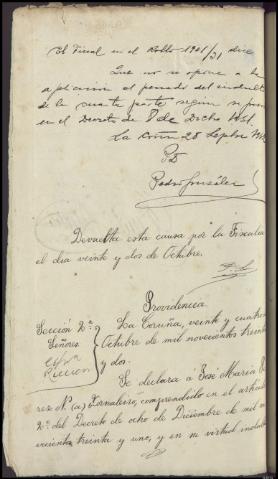 El Fiscal en el Rollo 1901/31 dice
Que no se opone a la
aplicación al penado del indulto
de la cuarta parte según se previene
en el Decreto de 8 de Dicbre 1931.
La Coruña 28 Sepbre
P.D.
Pedro González
Devuelta esta causa por la Fiscalía
el día veinte y dos de Octubre.
Providencia
Sección 2ª
Señores
La Coruña, veinte y cuatro
Octubre de mil novecientos treinta
y dos.
Se declara á José María
rez N. (a) Tornaleiro, comprendido en el artículo
2º del Decreto de ocho de Diciembre de mil no
vecientos treinta y uno, y en su virtud